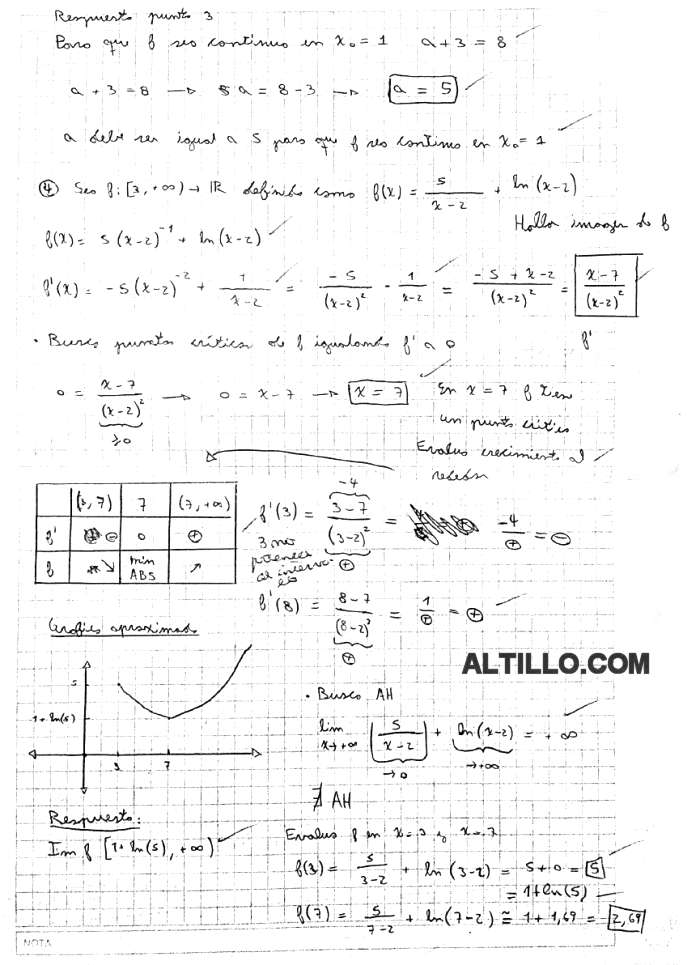 Respuesta punto 3
Para que f sea continua en x₀ = 1 a + 3 = 8
a + 3 = 8 → a = 8 - 3 → a = 5
a debe ser igual a 5 para que f sea continua en x₀ = 1
④ Sea f: [3, +∞) → IR definida como f(x) = 5/(x-2) + ln (x-2)
Hallar imagen de f
f(x) = 5 (x-2)⁻¹ + ln (x-2)
f'(x) = -5 (x-2)⁻² + 1/(x-2) = -5/(x-2)² - 1/(x-2) = (-5 + x - 2)/(x-2)² = (x-7)/(x-2)²
f'
• Busco puntos críticos de f igualando f' a 0
0 = (x-7)/(x-2)² → 0 = x-7 → x = 7
≥0
En x = 7 f tiene
un punto crítico
Evaluo crecimiento
(3, 7) 7 (7, +∞)
f' ⊖ 0 ⊕
f ↘ min ABS ↗
f'(3) = (3-7)/(3-2)² = -4/⊕ = ⊖
-4
⊕
3 no
pertenece
al intervalo
f'(8) = (8-7)/(8-2)² = 1/⊕ = ⊕
⊕
Grafico aproximado
5
1 + ln(5)
3 7
ALTILLO.COM
• Busco AH
lim x→+∞ (5/(x-2)) + ln (x-2) = + ∞
→0 →+∞
∄ AH
Respuesta:
Im f [1+ ln(5), +∞)
Evaluo f en x = 3 y x = 7
f(3) = 5/(3-2) + ln (3-2) = 5+0 = 5
= 1+ln(5)
f(7) = 5/(7-2) + ln(7-2) ≅ 1 + 1,69 = 2,69
NOTA